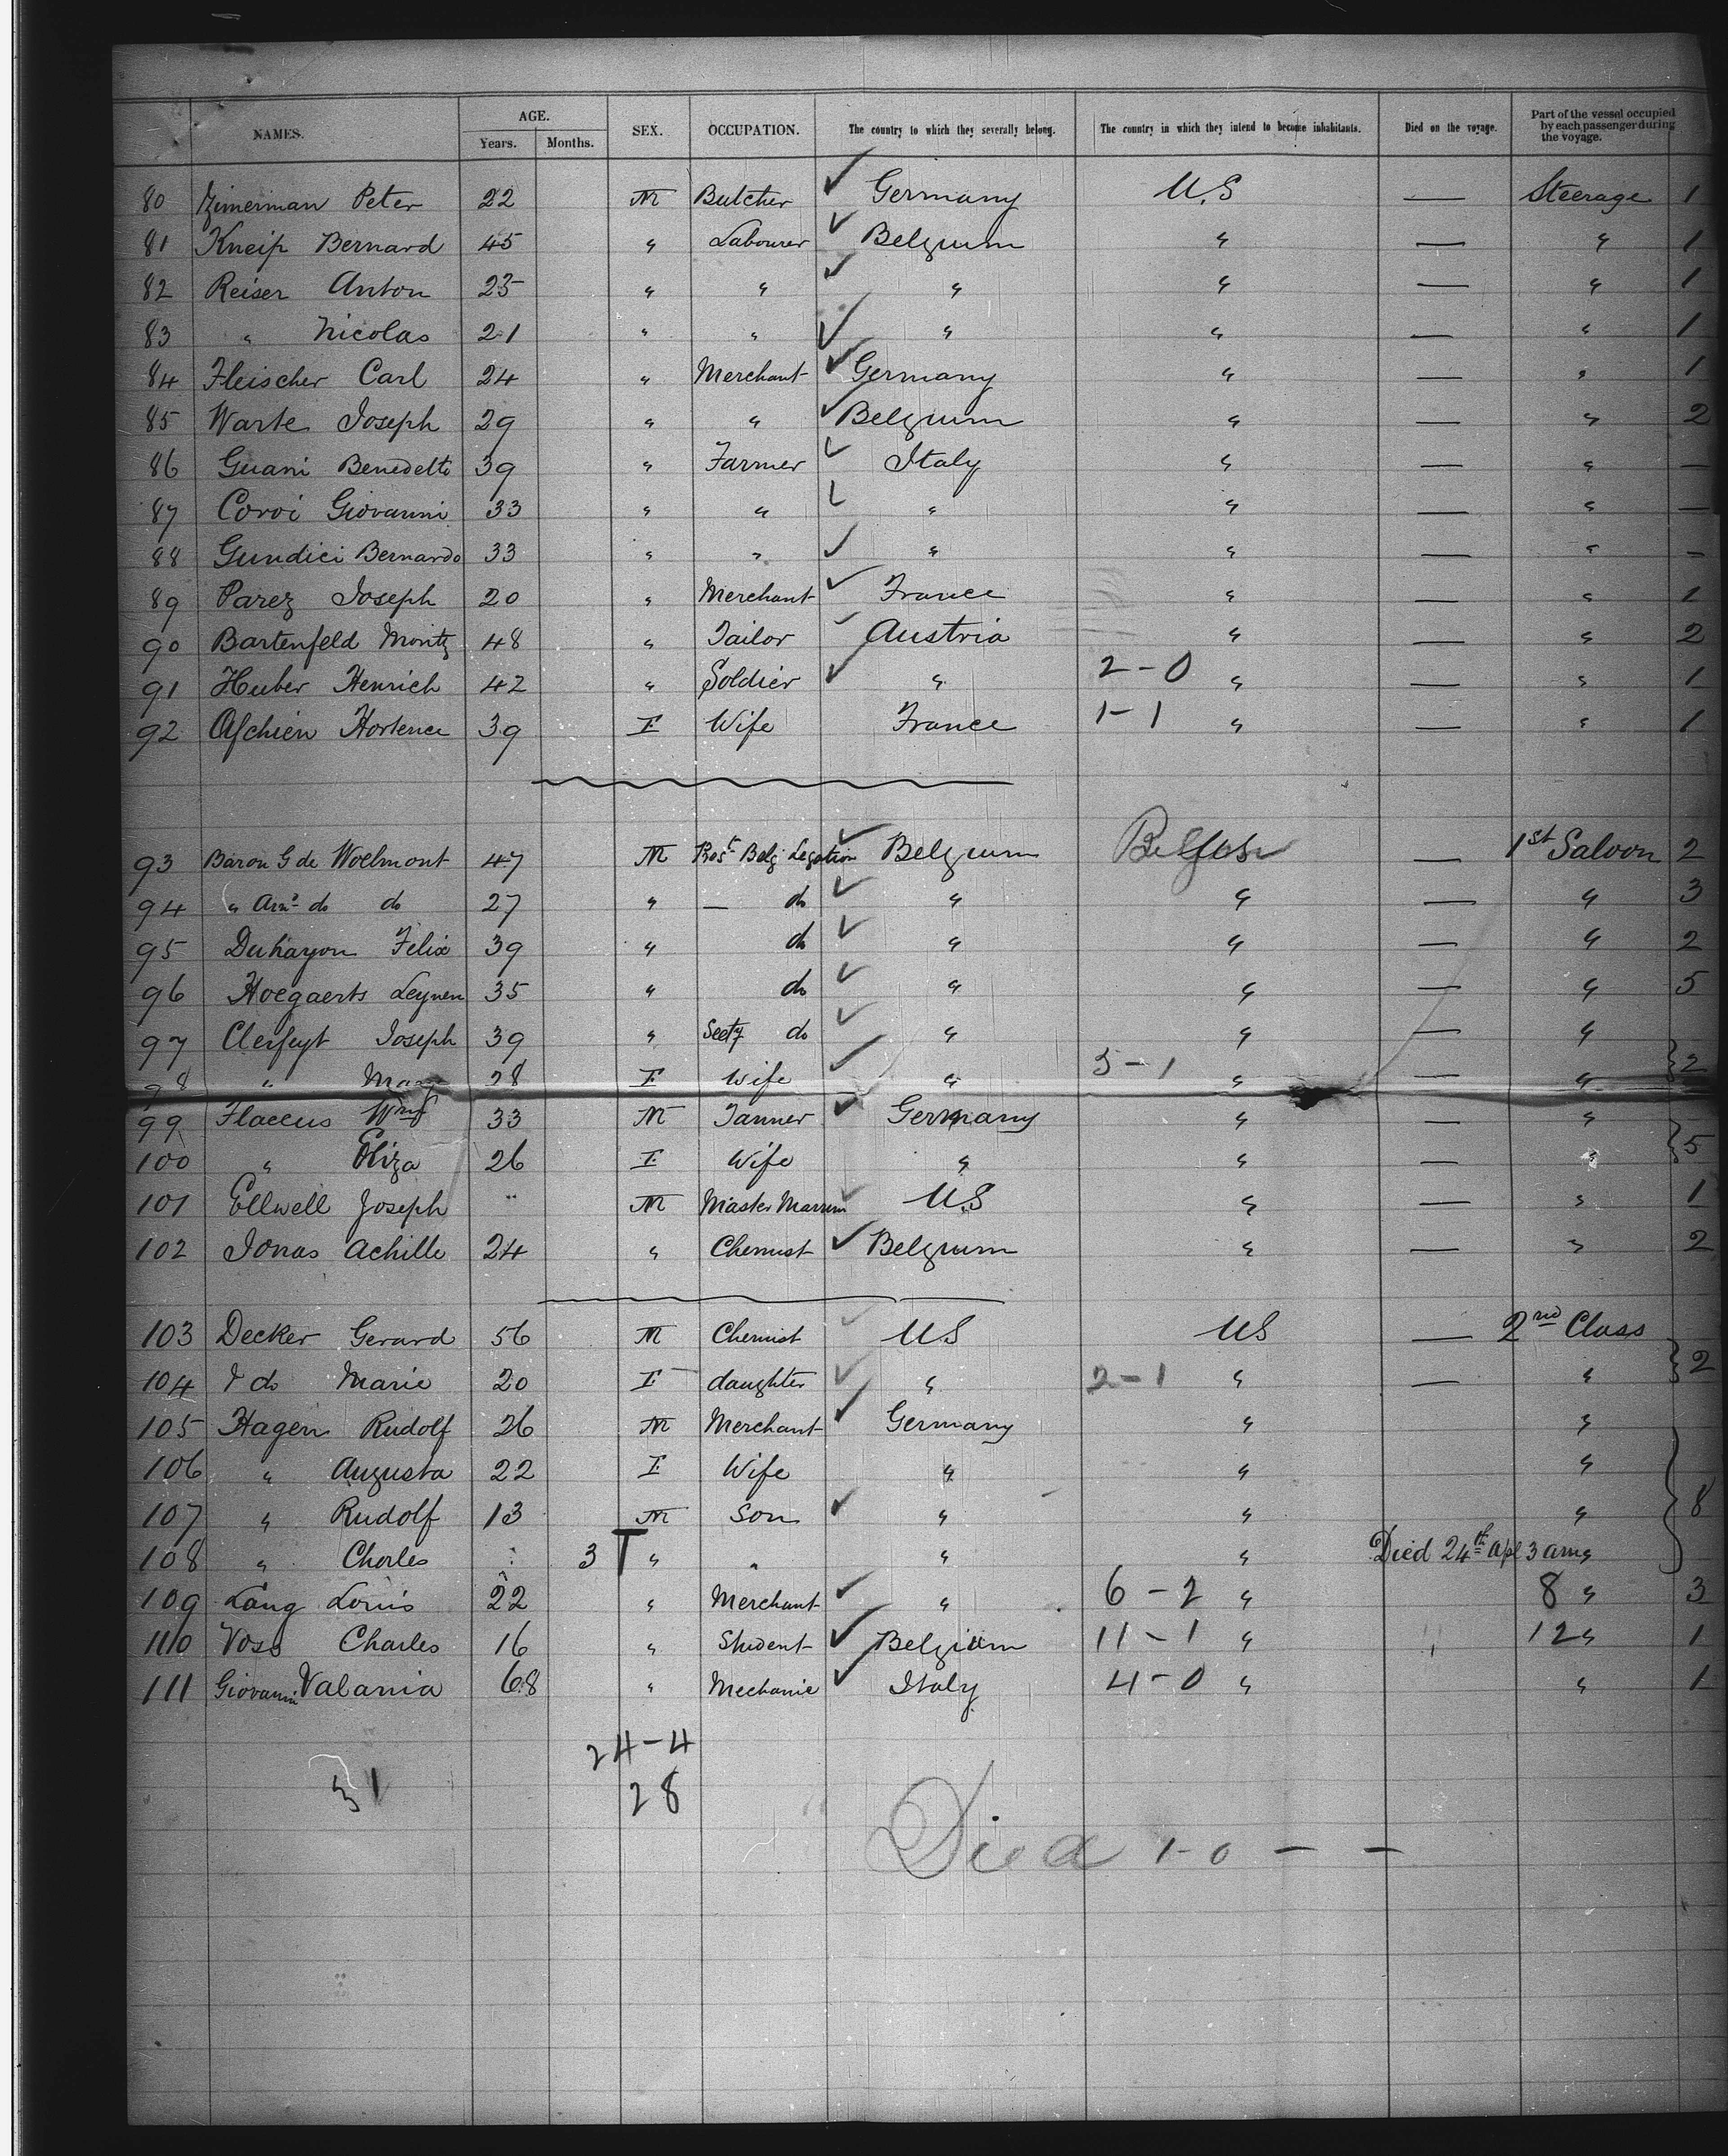 NAMES. AGE. Years. Months. SEX. OCCUPATION. The country to which they severally belong. The country in which they intend to become inhabitants. Died on the voyage. Part of the vessel occupied by each passenger during the voyage.
80 Zimerman Peter 22 M Butcher ✓ Germany U.S — Steerage 1
81 Kneip Bernard 45 " Labourer ✓ Belgium " — " 1
82 Reiser Anton 25 " " ✓ " " — " 1
83 " Nicolas 21 " " ✓ " " — " 1
84 Fleischer Carl 24 " Merchant ✓ Germany " — " 1
85 Warte Joseph 29 " " ✓ Belgium " — " 2
86 Guani Benedetto 39 " Farmer ✓ Italy " — " —
87 Corvi Giovanni 33 " " ✓ " " — " —
88 Gundici Bernardo 33 " " ✓ " " — " —
89 Parez Joseph 20 " Merchant ✓ France " — " 1
90 Bartenfeld Moritz 48 " Tailor ✓ Austria " — " 2
91 Huber Henrich 42 " Soldier ✓ " 2-0 " — " 1
92 Hortence 39 F Wife France 1-1 " — " 1
93 Baron G de Woelmont 47 M Belg Legation ✓ Belgium — 1st Saloon 2
94 " do do 27 " — do ✓ " " — " 3
95 Duhayon Felix 39 " do ✓ " " — " 2
96 Hoegaerts Leynen 35 " do ✓ " " — " 5
97 Clerfeyt Joseph 39 " Secty do ✓ " " — "
98 " Mary 28 F Wife ✓ " 5-1 " — " } 2
99 Flaccus Wm 33 M Tanner ✓ Germany " — "
100 " Eliza 26 F Wife " " — " } 5
101 Ellwell Joseph " M Master Marrine ✓ U.S " — " 1
102 Jonas Achille 24 " Chemist ✓ Belgium " — " 2
103 Decker Gerard 56 M Chemist ✓ US US — 2nd Class
104 & do Marie 20 F daughter ✓ " 2-1 " — " } 2
105 Hagen Rudolf 26 M Merchant ✓ Germany " "
106 " Augusta 22 F Wife " " "
107 " Rudolf 13 M Son ✓ " " " } 8
108 " Charles 3 T " " " " Died 24th Apl 3 am "
109 Lang Louis 22 " Merchant ✓ " 6-2 " 8 " 3
110 Voss Charles 16 " Student ✓ Belgium 11-1 " 12 " 1
111 Giovanni Valania 68 " Mechanic ✓ Italy 4-0 " " 1
24-4
31 28
Died 1-0 — —